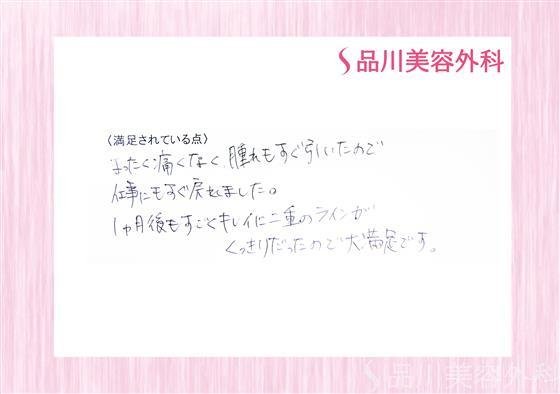 品川美容外科
〈満足されている点〉
まったく痛くなく、腫れもすぐ引いたので
仕事にもすぐ戻れました。
1ヵ月後もすごくキレイに二重のラインが
くっきりだったので大満足です。
品川美容外科